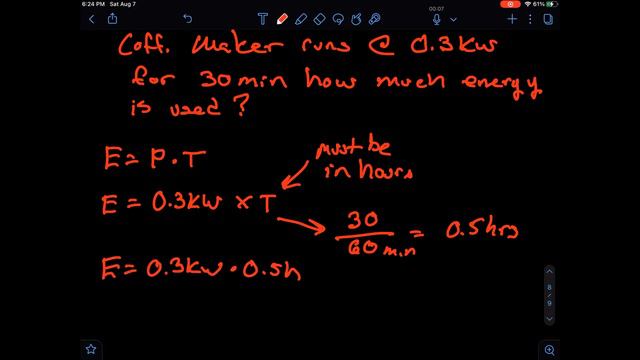 6:24 PM Sat Aug 7
00:07
61%
Coff. Maker runs @ 0.3kw
for 30 min how much energy
is used?
E = P · T
must be
in hours
E = 0.3kw x T
30
60 min
= 0.5hrs
E = 0.3kw · 0.5h
8
/
9